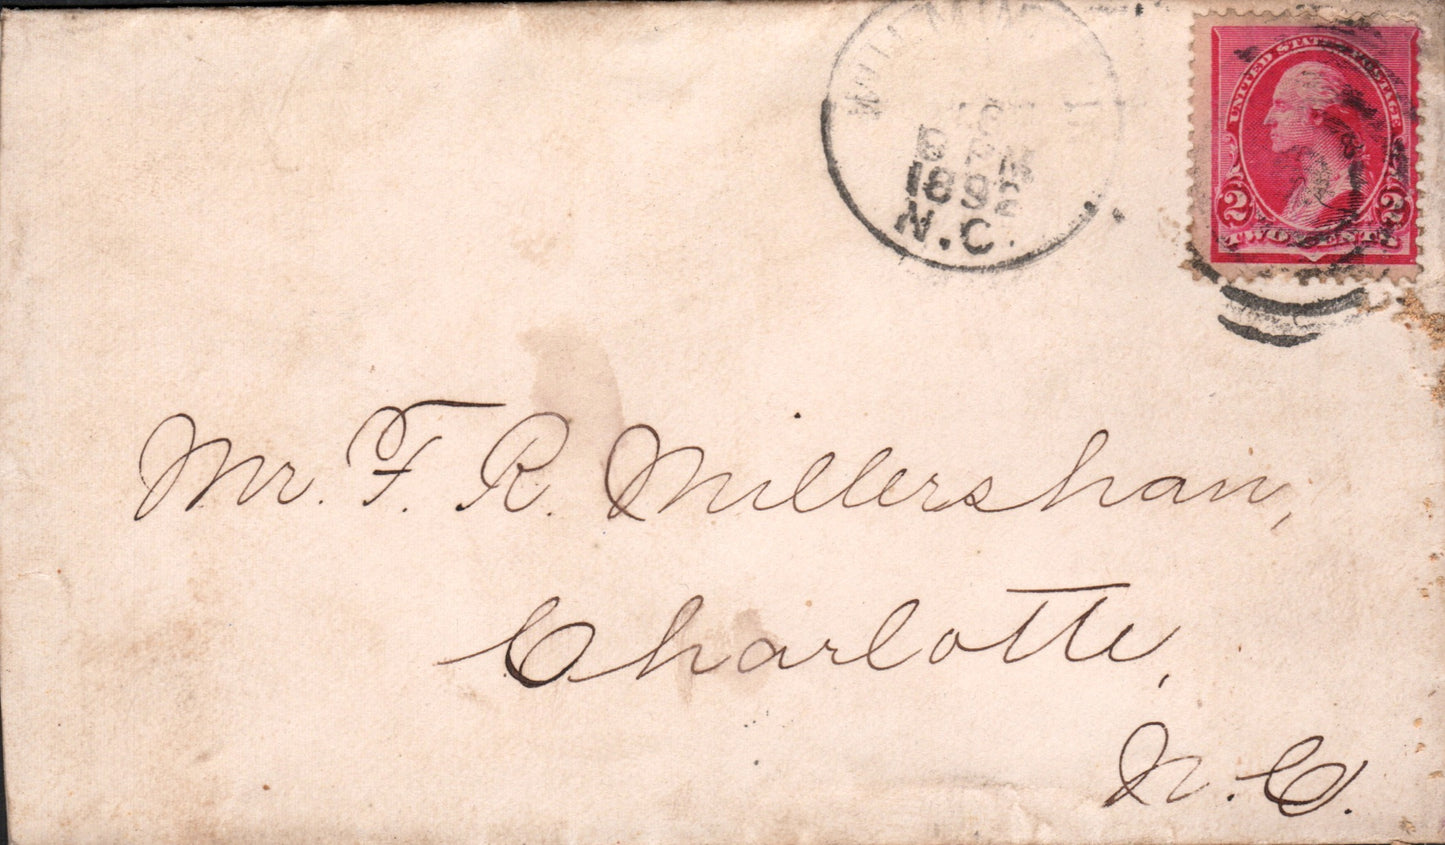 8 PM
1892
N.C.
UNITED STATES POSTAGE
2 2
TWO CENTS
Mr. F. R. Millershan,
Charlotte,
N.C.